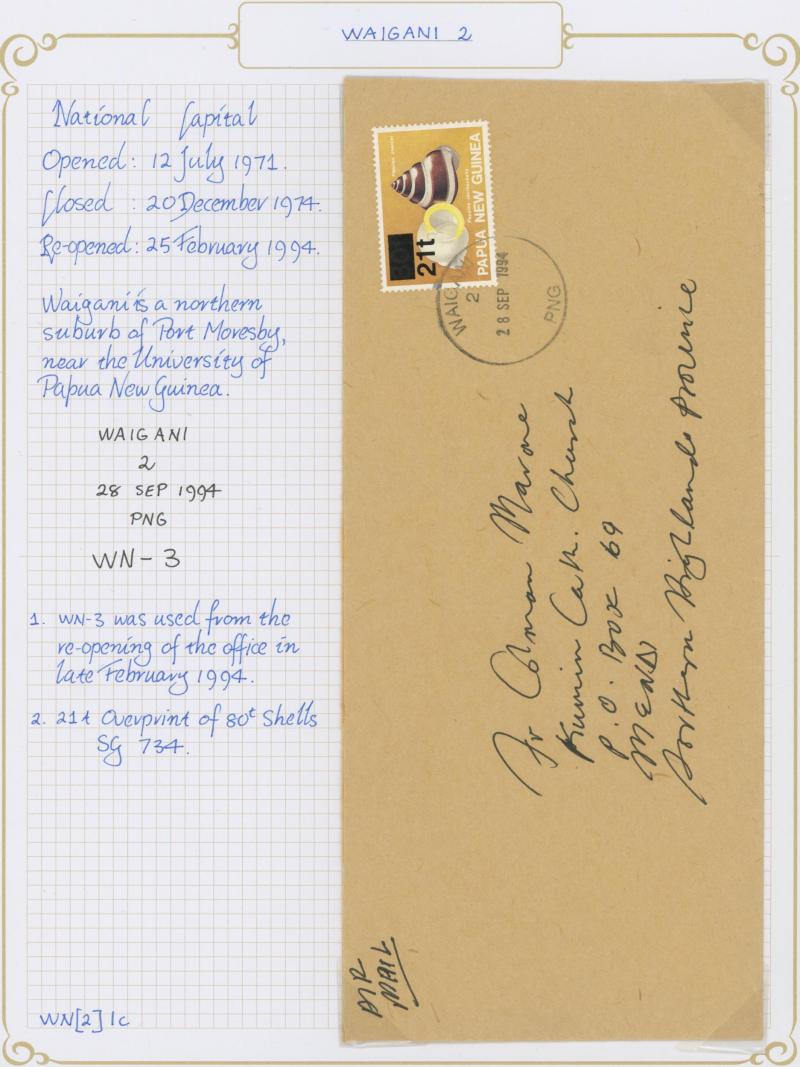 WAIGANI 2
National Capital
Opened: 12 July 1971.
Closed : 20 December 1974.
Re-opened: 25 February 1994.
Waigani is a northern
suburb of Port Moresby,
near the University of
Papua New Guinea.
WAIGANI
2
28 SEP 1994
PNG
WN-3
1. WN-3 was used from the
re-opening of the office in
late February 1994.
2. 21t Overprint of 80t Shells
SG 734.
WN[2] 1c
21t
PAPUA NEW GUINEA
WAIGANI
2
28 SEP 1994
PNG
Fr Colman Marone
Kumin Cath. Church
P.O. Box 69
MENDI
Southern Highlands Province
AIR
MAIL